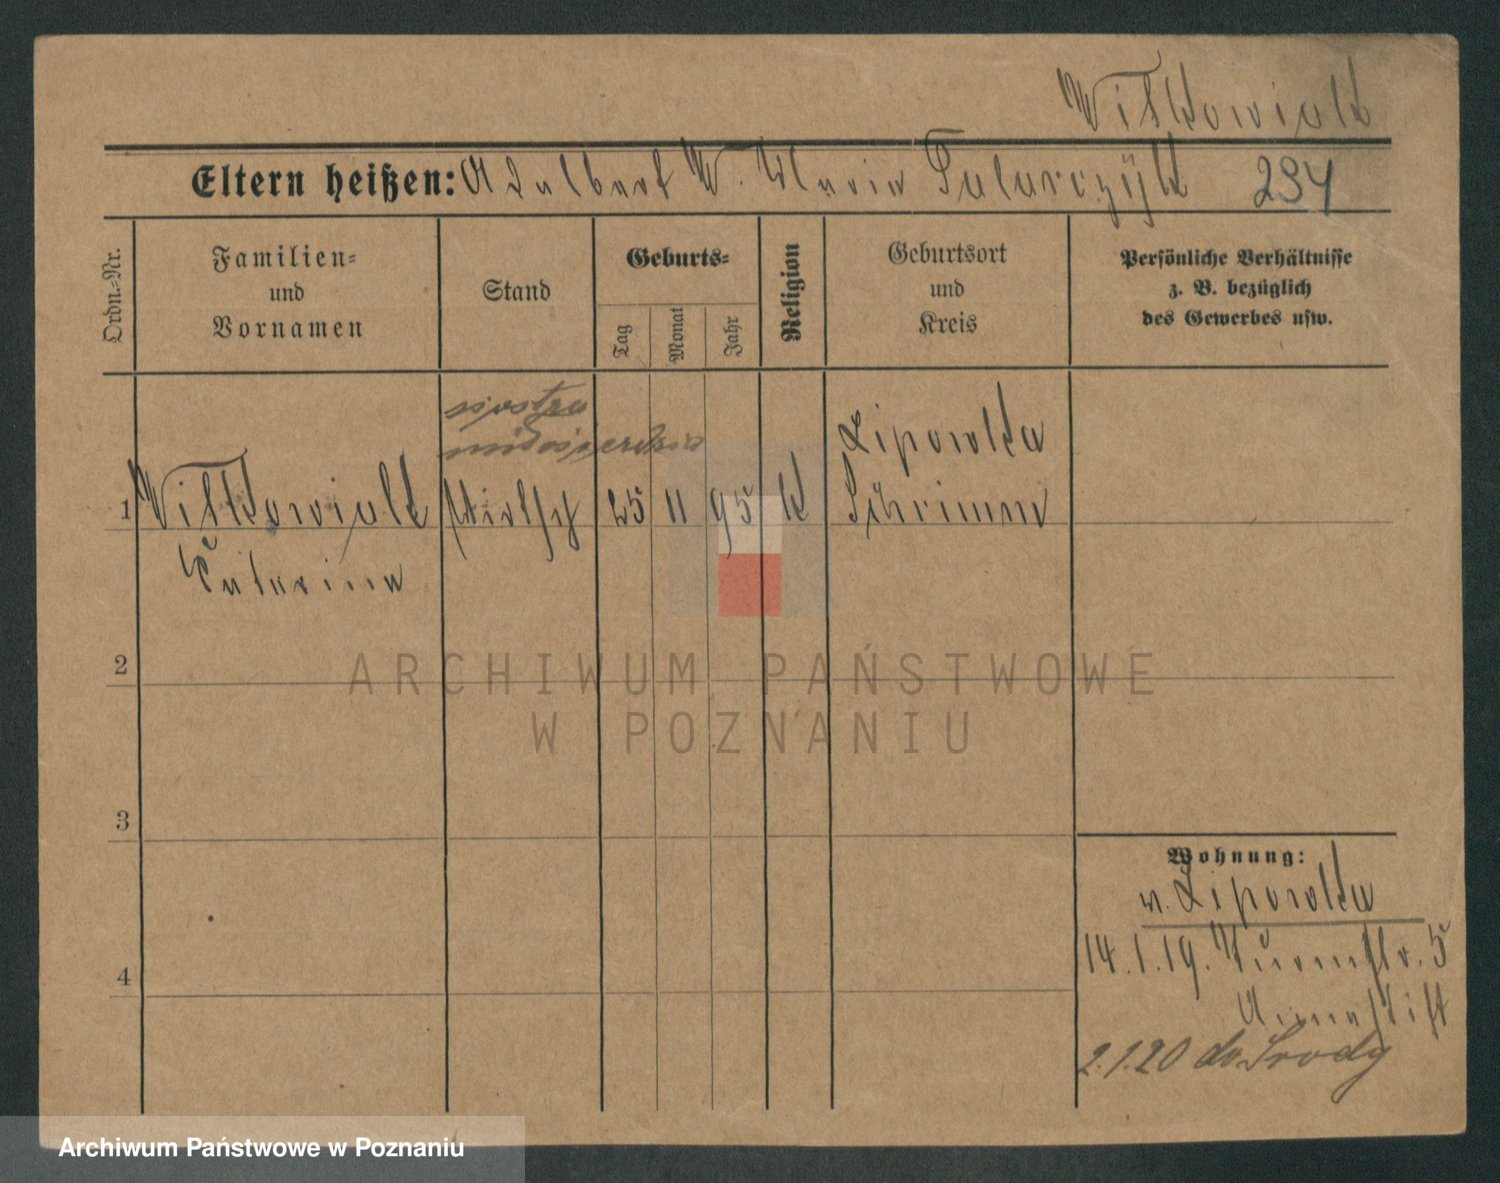 Witkowiak
Eltern heißen: Adalbert W. Maria Tatarczyk 294
Ordn.-Nr.
Familien-
und
Vornamen
Stand
Geburts-
Tag
Monat
Jahr
Religion
Geburtsort
und
Kreis
Persönliche Verhältnisse
z. B. bezüglich
des Gewerbes usw.
siostra
miłosierdzia
1 Witkowiak 25 11 95 K
Katarina
Lipowka
Schrimm
2
3
4
Wohnung:
v. Lipowka
14.1.19. 5
Annastift
2.1.20 do Środy
ARCHIWUM PAŃSTWOWE
W POZNANIU
Archiwum Państwowe w Poznaniu